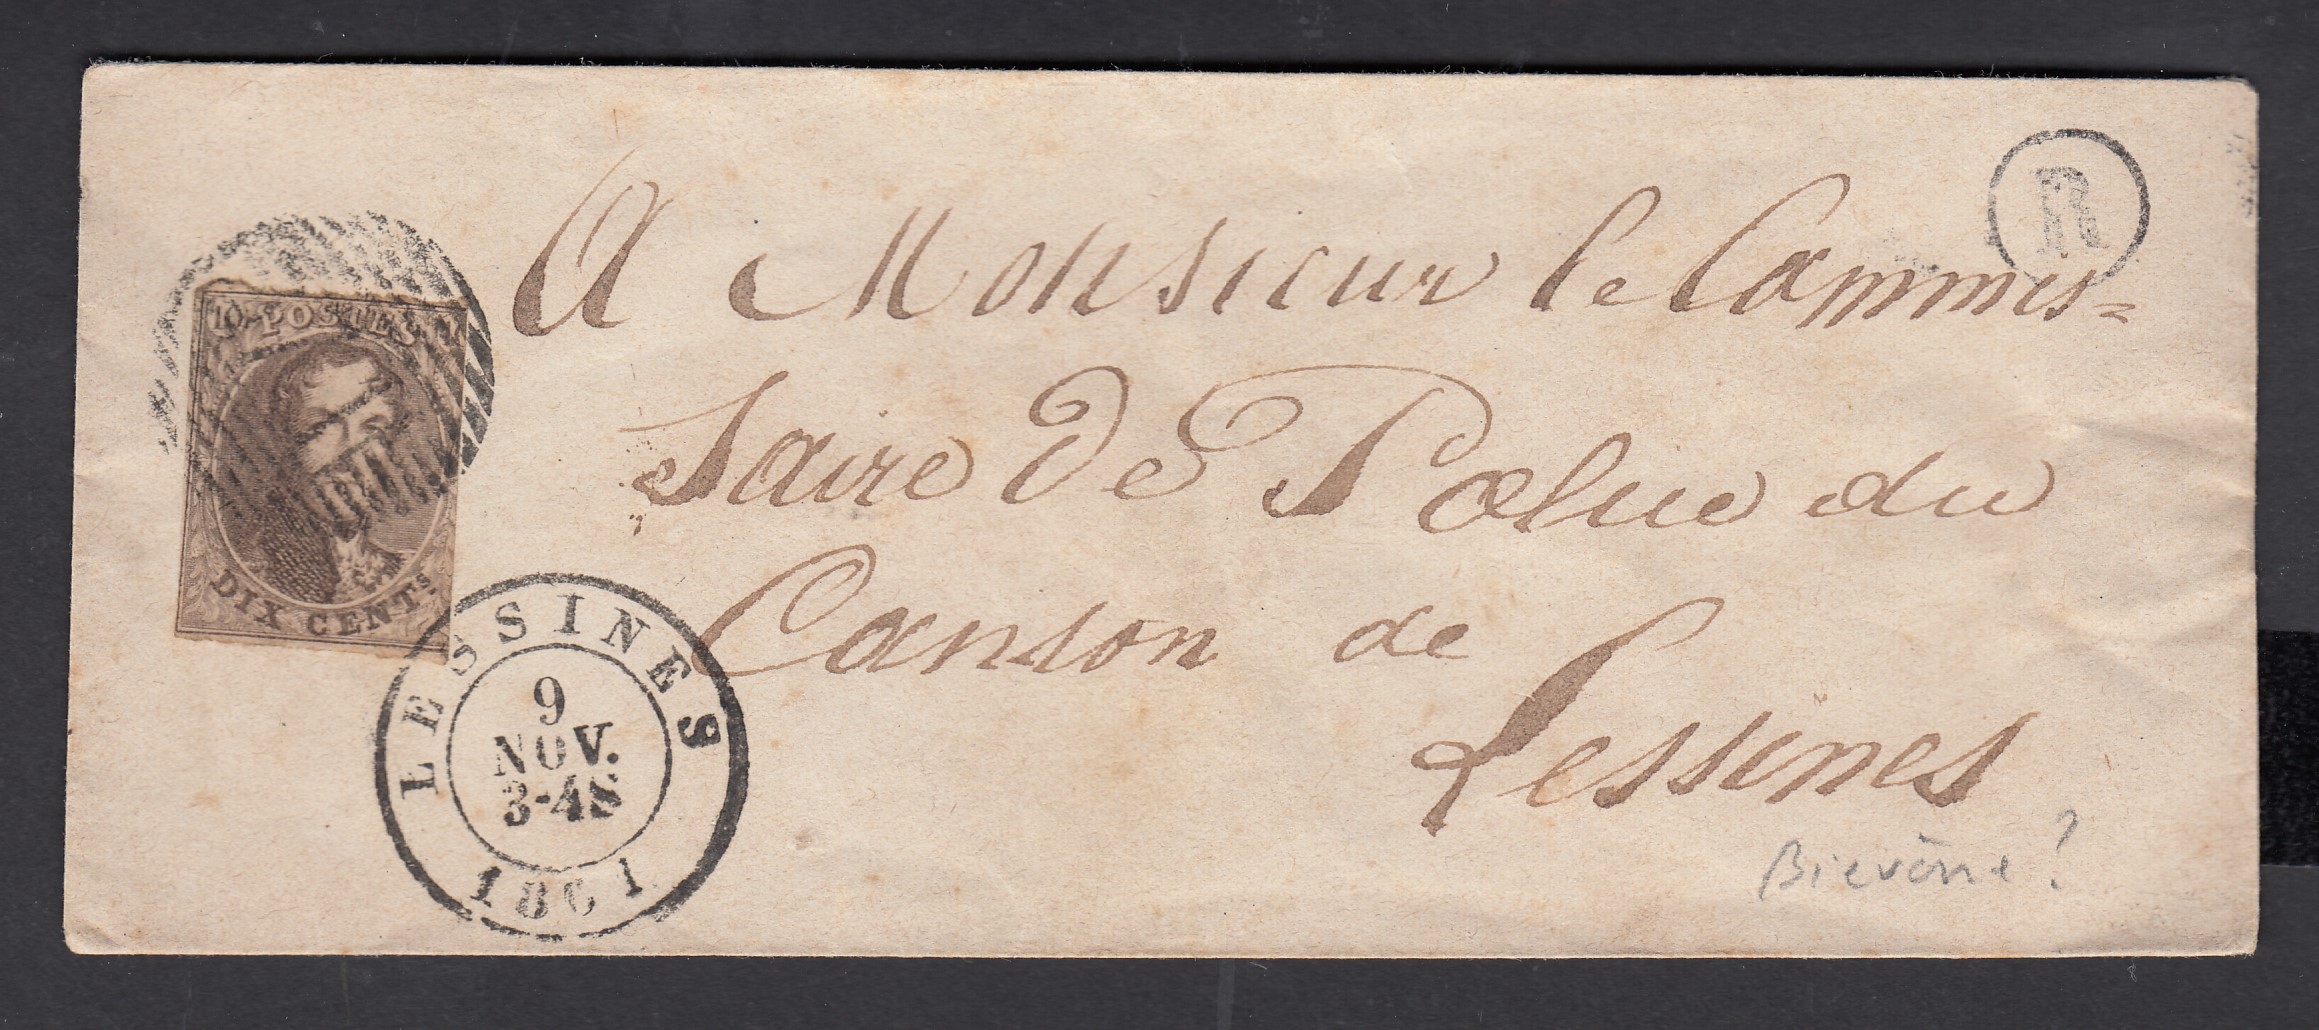 R
A Monsieur le Commis=
saire de Police du
Canton de
Lessines
10 POSTES
DIX CENTS.
LESSINES
9
NOV.
3-4S
1861
Bievène?